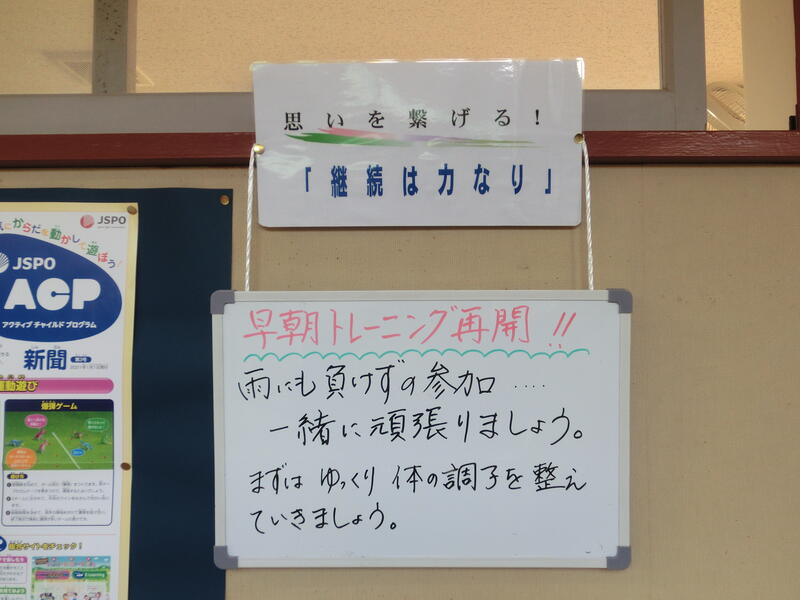 思いを繋げる！
「継続は力なり」
早朝トレーニング再開!!
雨にも負けずの参加‥‥
一緒に頑張りましょう。
まずは ゆっくり 体の調子を整え
ていきましょう。
JSPO
気にからだを動かして遊ぼう!
JSPO
ACP
アクティブ チャイルド プログラム
新聞
運動遊び
爆弾ゲーム
総合サイトをチェック!